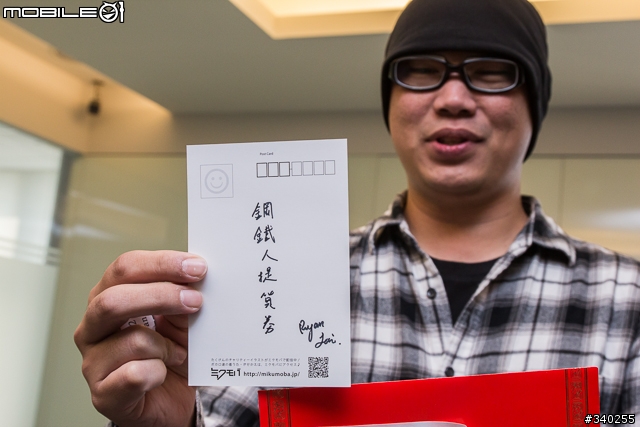 MOBILE01
Post Card
鋼鐵人提貨券
Ryan
ミクモバ http://mikumoba.jp/
#340255